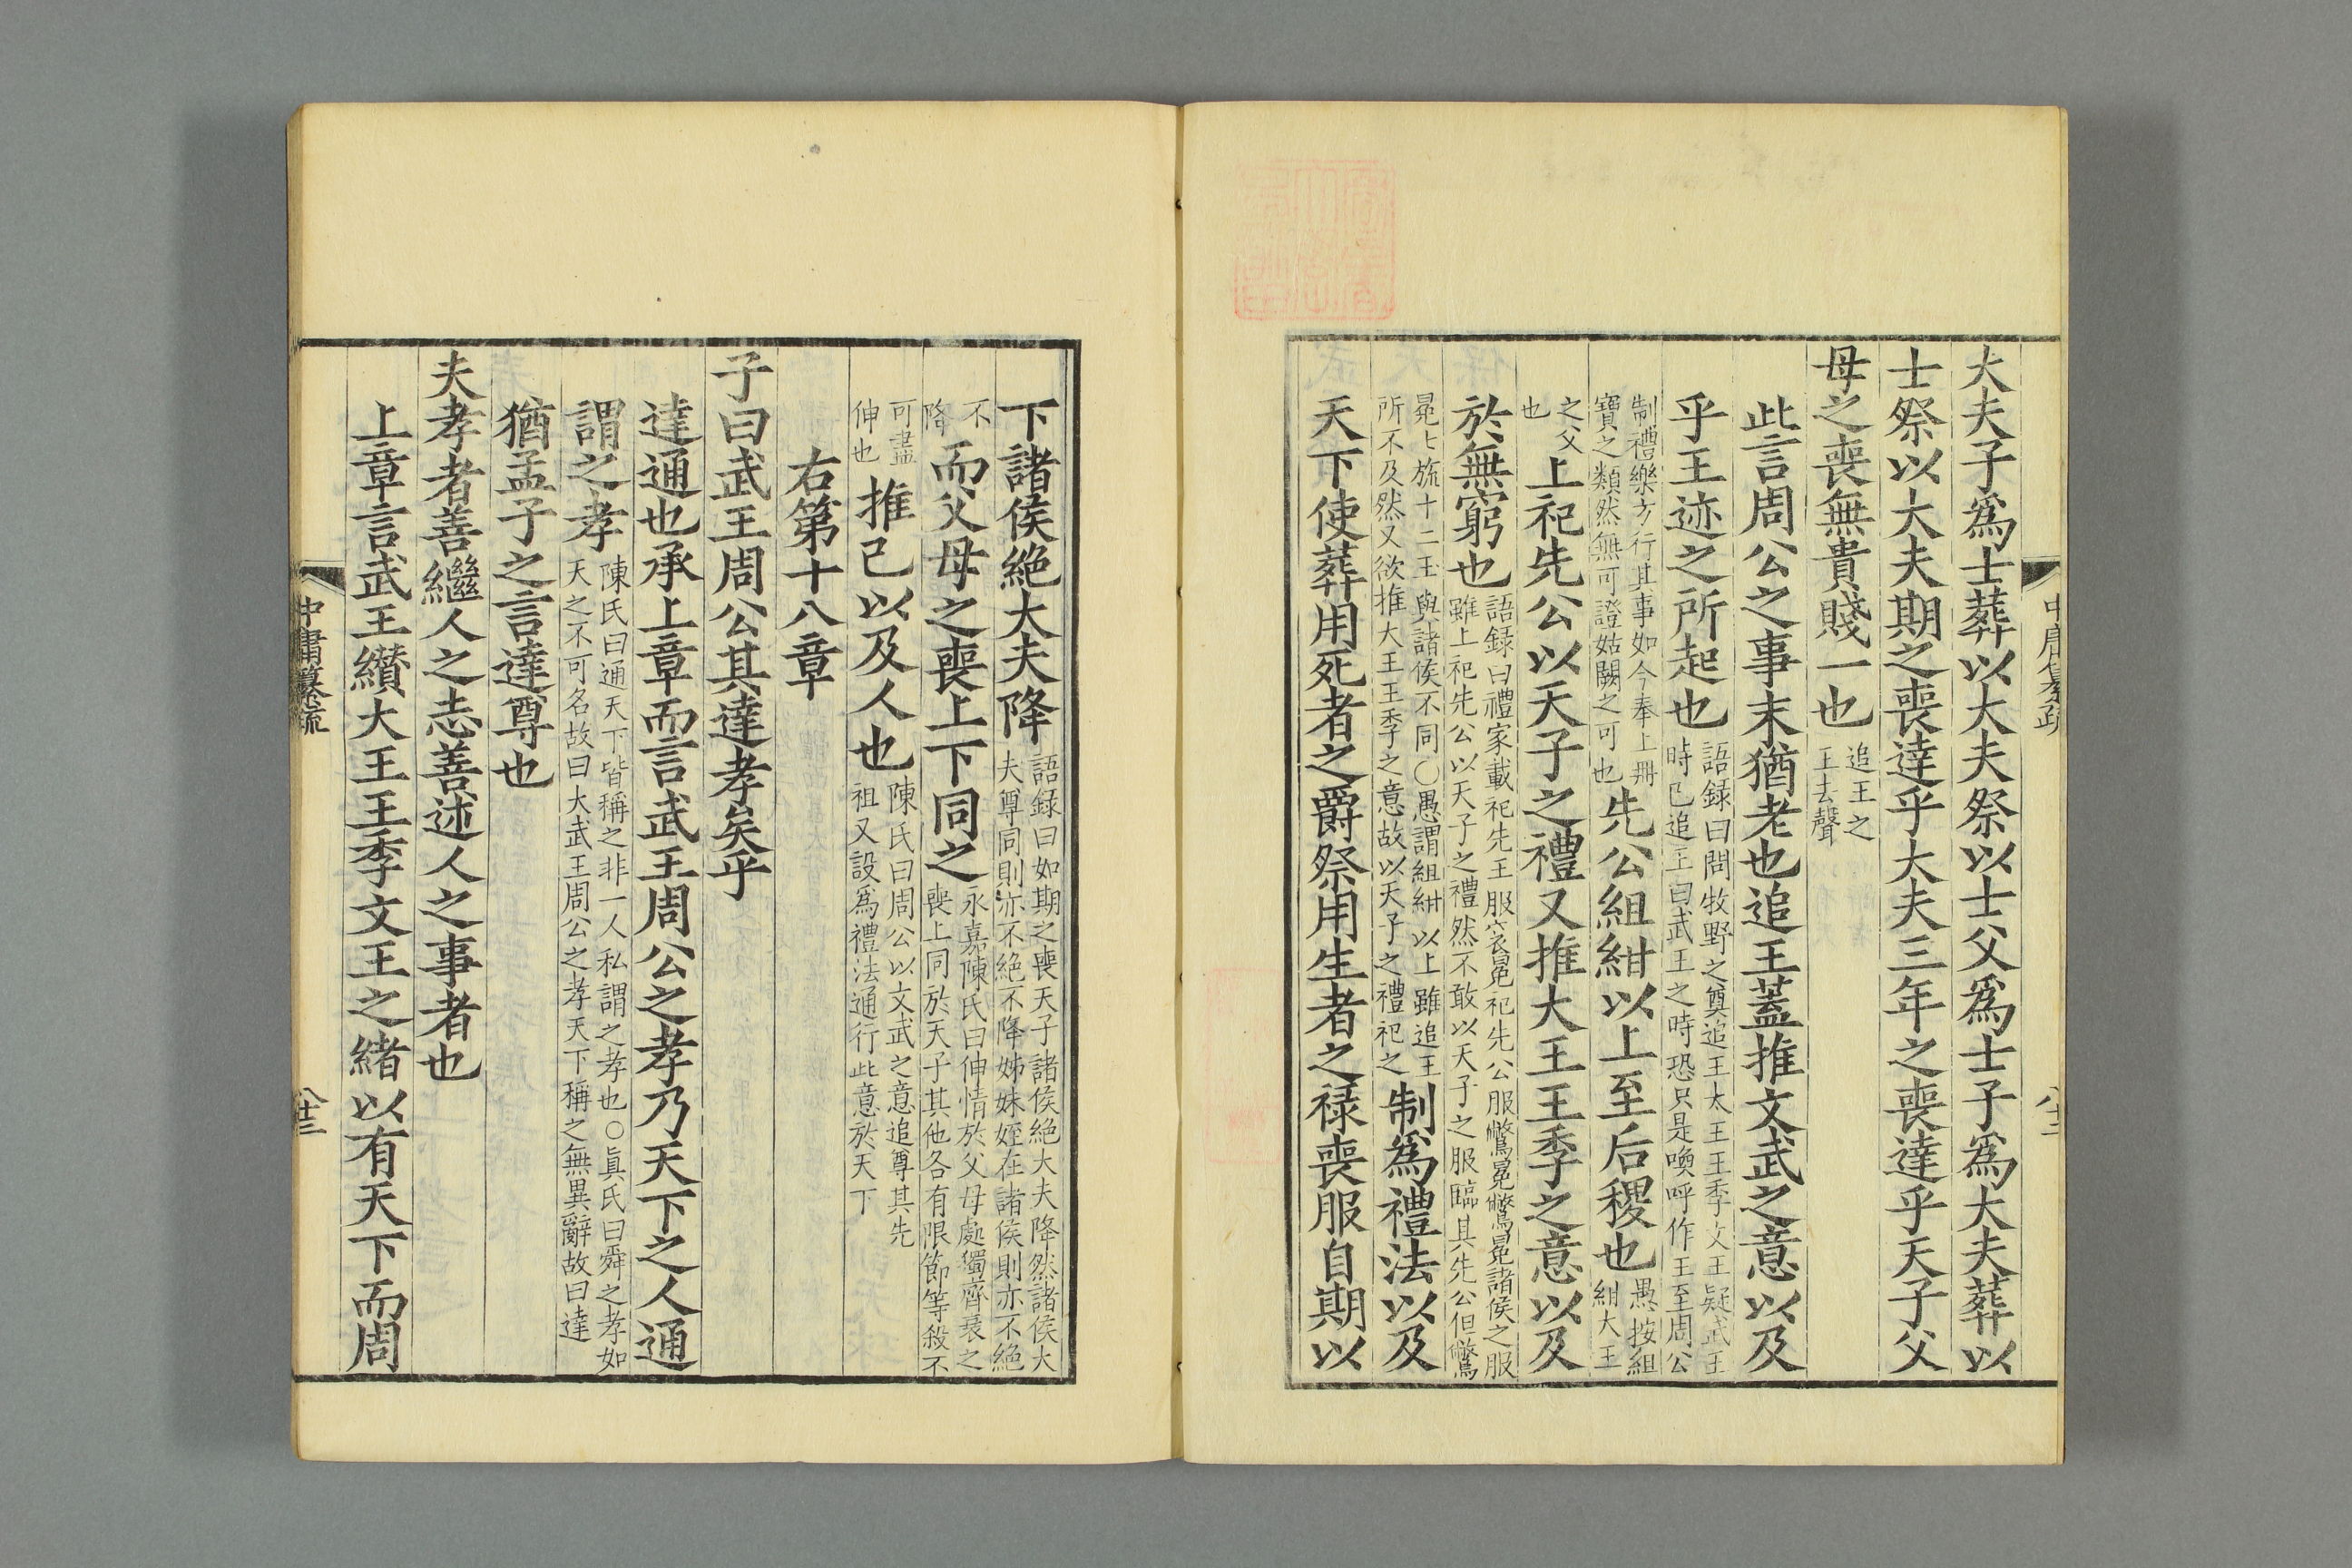 大夫子爲士葬以大夫祭以士父爲士子爲大夫葬以
士祭以大夫期之喪達乎大夫三年之喪達乎天子父
母之喪無貴賤一也追王之王去聲
此言周公之事末猶老也追王蓋推文武之意以及
乎王迹之所起也語録曰問牧野之奠追王太王王季文王疑武王時已追王曰武王之時恐只是喚呼作王至周公
制禮樂方行其事如今奉上冊寶之類然無可證姑闕之可也先公組紺以上至后稷也愚按組紺大王
之父也上祀先公以天子之禮又推大王王季之意以及
於無窮也語録曰禮家載祀先王服衮冕祀先公服鷩冕鷩冕諸侯之服雖上祀先公以天子之禮然不敢以天子之服臨其先公但鷩
冕七旒十二玉與諸侯不同○愚謂組紺以上雖追王所不及然又欲推大王王季之意故以天子之禮祀之制爲禮法以及
天下使葬用死者之爵祭用生者之禄喪服自期以
中庸纂疏
下諸侯絶大夫降語録曰如期之喪天子諸侯絶大夫降然諸侯大夫尊同則亦不絶不降姊妹姪在諸侯則亦不絶
不降而父母之喪上下同之永嘉陳氏曰伸情於父母處獨齊衰之喪上同於天子其他各有限節等殺不
可盡伸也推己以及人也陳氏曰周公以文武之意追尊其先祖又設爲禮法通行此意於天下
右第十八章
子曰武王周公其達孝矣乎
達通也承上章而言武王周公之孝乃天下之人通
謂之孝陳氏曰通天下皆稱之非一人私謂之孝也○眞氏曰舜之孝如天之不可名故曰大武王周公之孝天下稱之無異辭故曰達
猶孟子之言達尊也
夫孝者善繼人之志善述人之事者也
上章言武王纘大王王季文王之緒以有天下而周
中庸纂疏